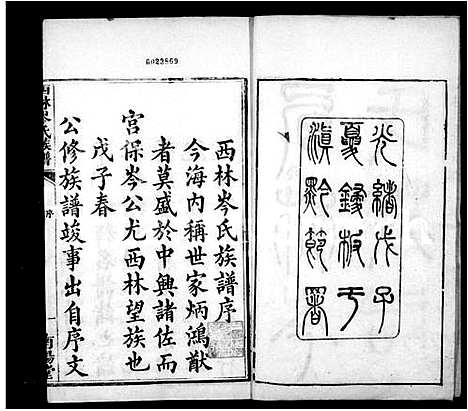 光緒戊子
夏鋟板于
滇黔節署
6023869
西林岑氏族譜序
今海內稱世家炳鴻猷
者莫盛於中興諸佐而
宮保岑公尤西林望族也
戊子春
公修族譜竣事出自序文
西林岑氏族譜
序
一
南陽堂